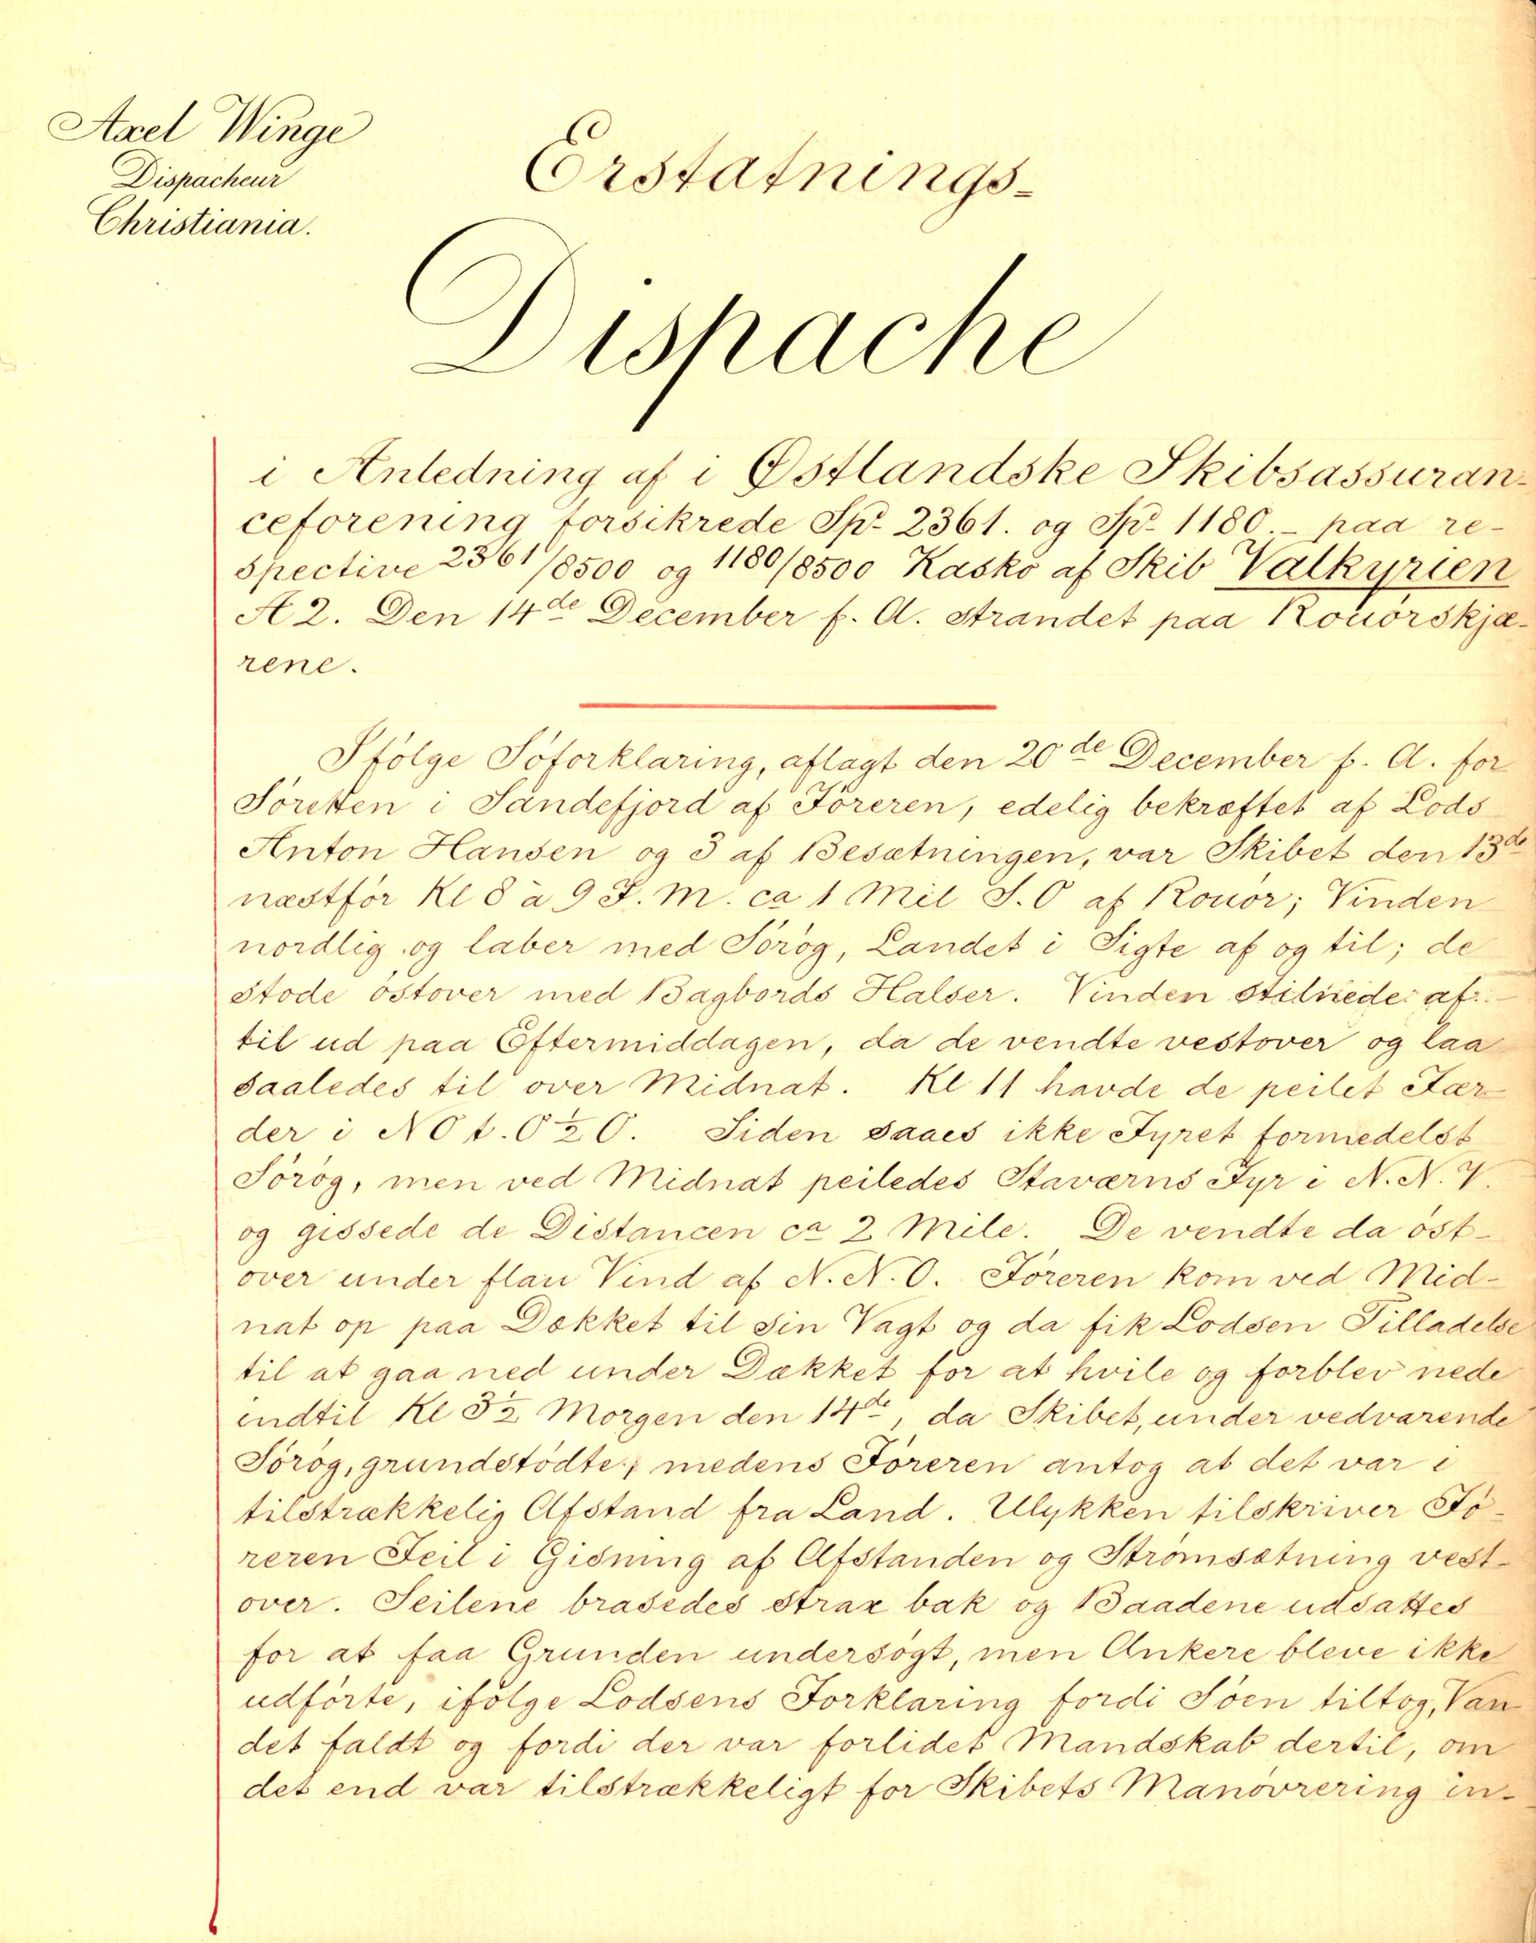 Axel Winge
Dispacheur
Christiania.
Erstatnings-
Dispache
i Anledning af i Østlandske Skibsassuran-
ceforening forsikrede Spd. 2361. og Spd. 1180.- paa re-
spective 2361/8500 og 1180/8500 Kasko af Skib Valkyrien
A 2. Den 14de December f. A. strandet paa Rouörskjæ-
rene.
Ifölge Söforklaring, aflagt den 20de December f. A. for
Söretten i Sandefjord af Föreren, edelig bekræftet af Lods
Anton Hansen og 3 af Besætningen, var Skibet den 13de
næstför Kl 8 à 9 F. M. ca 1 Mil S. O af Rouör; Vinden
nordlig og laber med Söròg, Landet i Sigte af og til; de
stode östover med Bagbords Halser. Vinden stilnede af
til ud paa Eftermiddagen, da de vendte vestover og laa
saaledes til over Midnat. Kl 11 havde de peilet Fær-
der i NO t. O ½ O. Siden saaes ikke Fyret formedelst
Söròg, men ved Midnat peiledes Staværns Fyr i N. N. V.
og gissede de Distancen ca 2 Mile. De vendte da öst-
over under flau Vind af N. N. O. Föreren kom ved Mid-
nat op paa Dækket til sin Vagt og da fik Lodsen Tilladelse
til at gaa ned under Dækket for at hvile og forblev nede
indtil Kl 3½ Morgen den 14de, da Skibet, under vedvarende
Söròg, grundstödte; medens Föreren antog at det var i
tilstrækkelig Afstand fra Land. Ulykken tilskriver Fö-
reren Feil i Gisning af Afstanden og Strömsætning vest-
over. Seilene brasedes strax bak og Baadene udsattes
for at faa Grunden undersögt, men Ankere bleve ikke
udförte, ifölge Lodsens Forklaring fordi Söen tiltog, Van
det faldt og fordi der var forlidet Mandskab dertil, om
det end var tilstrækkeligt for Skibets Manövrering in-